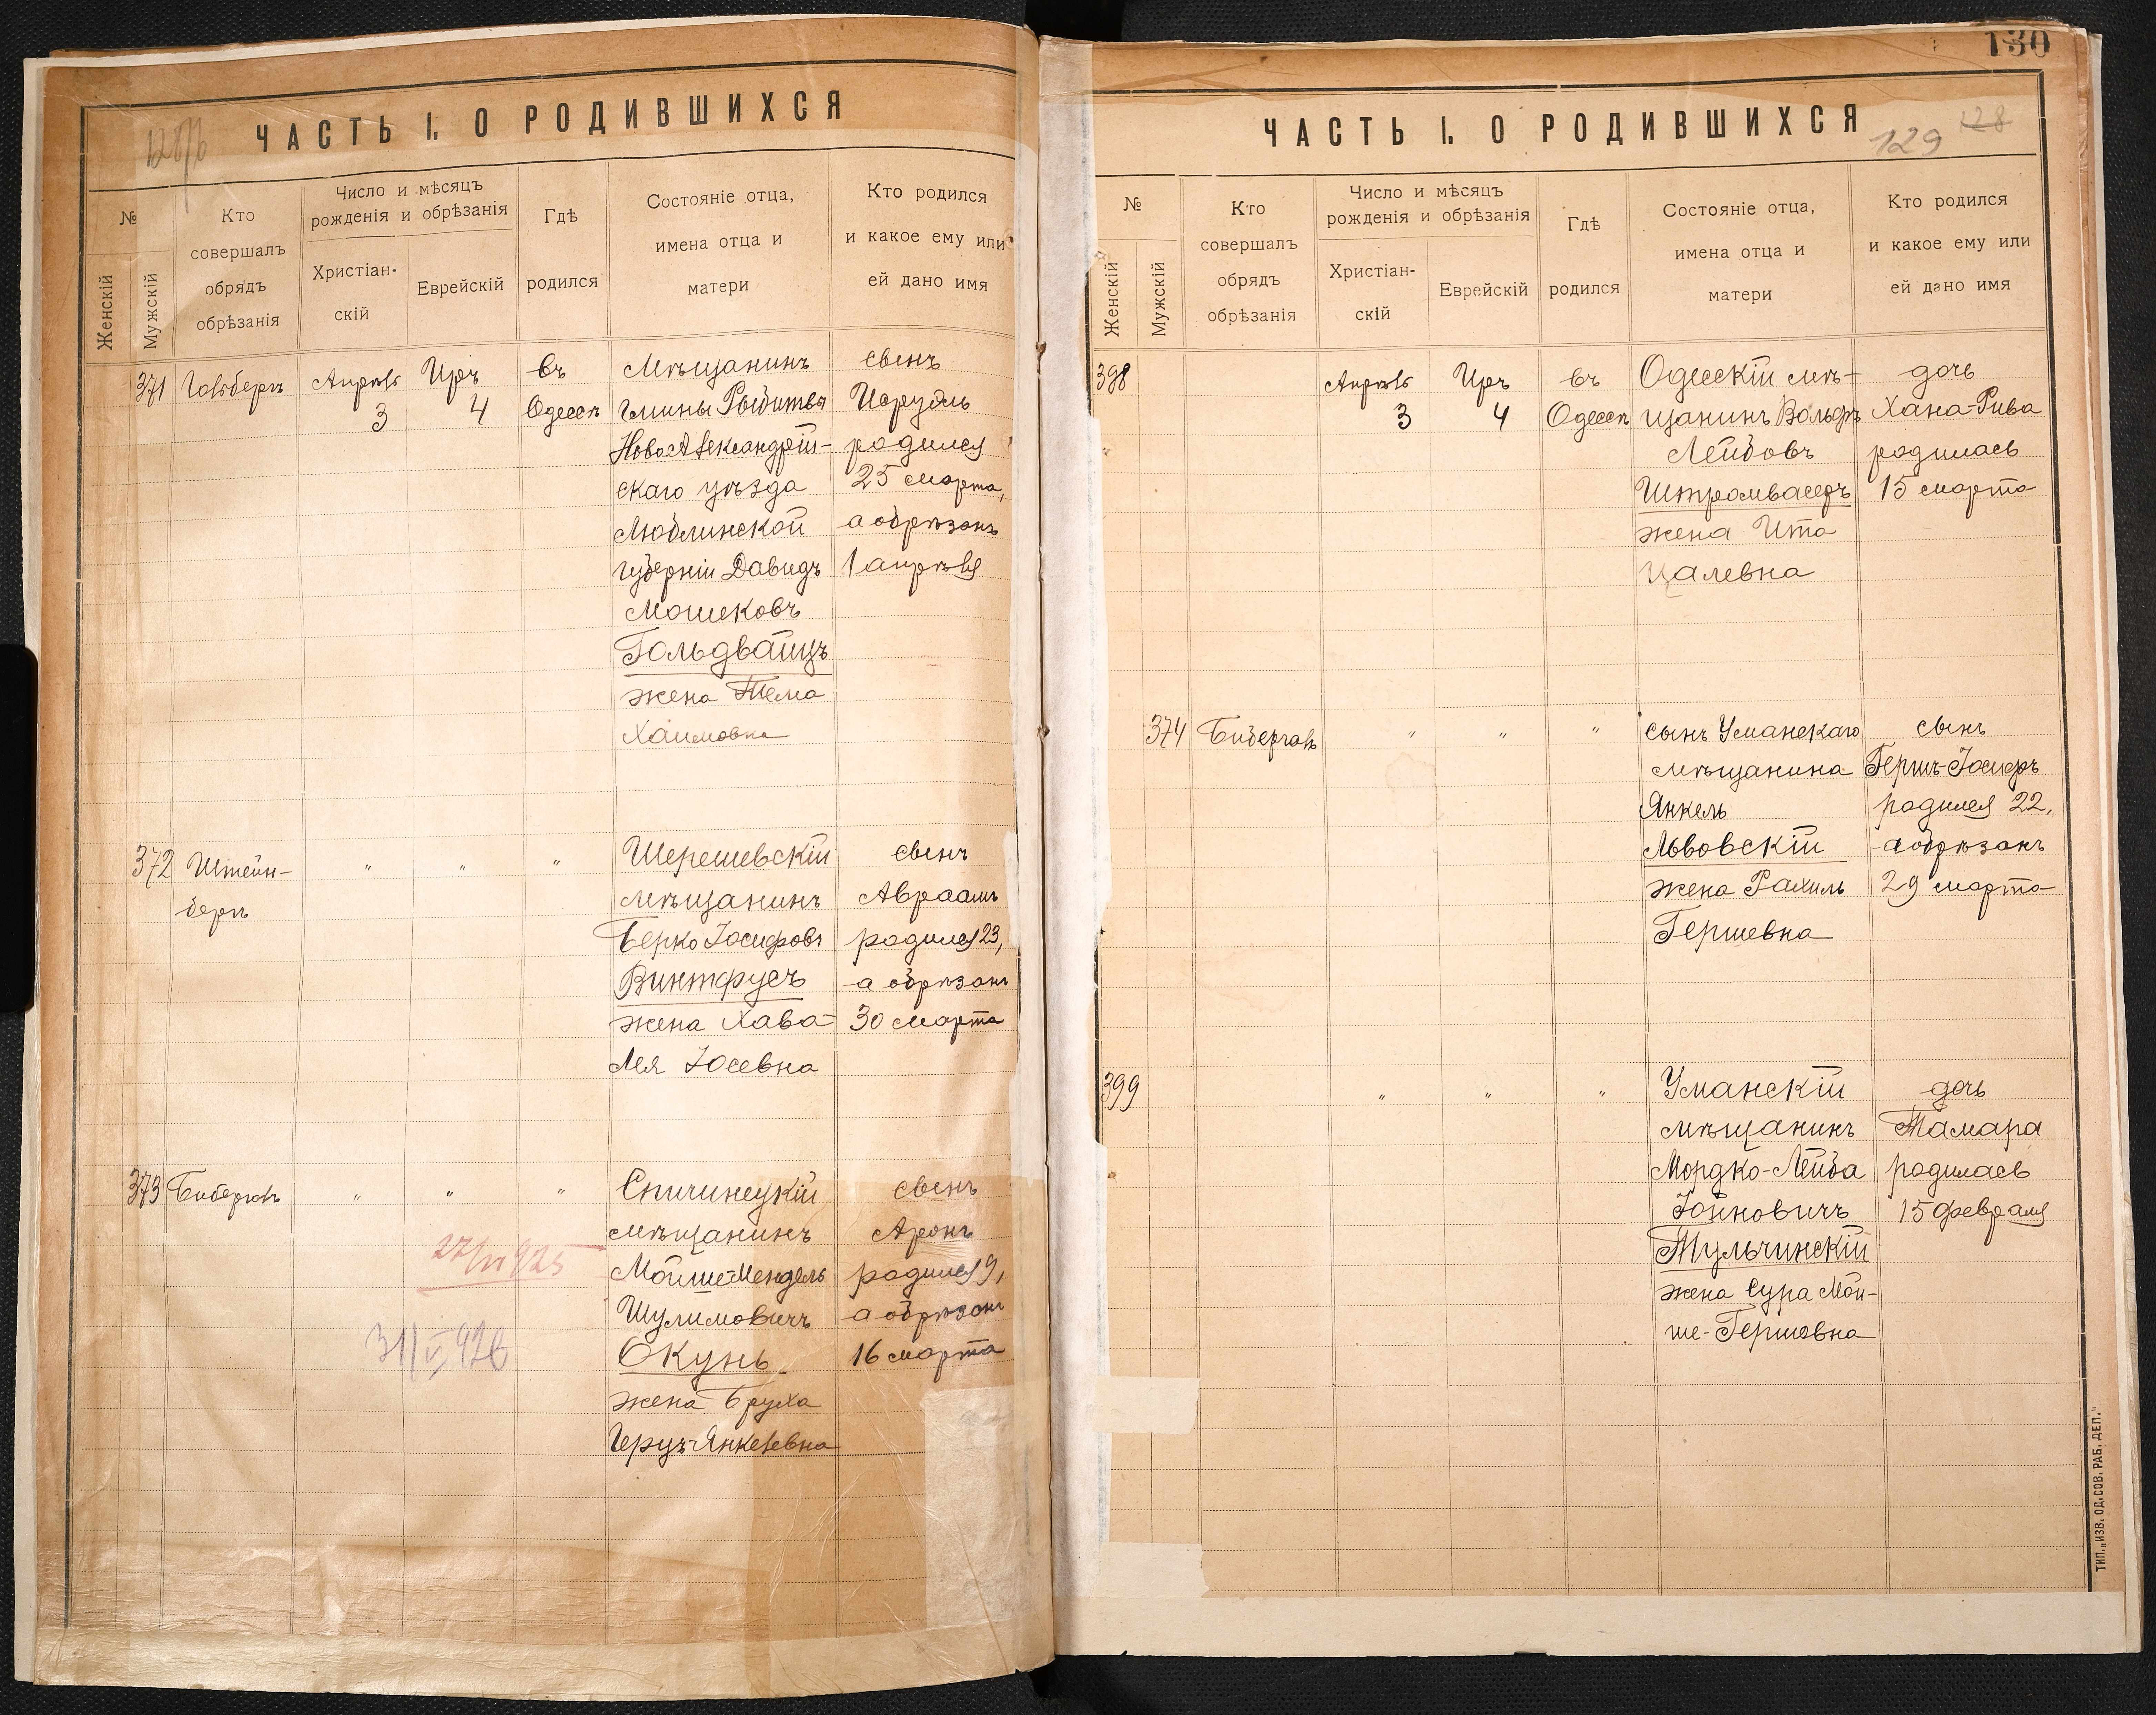 ЧАСТЬ I. О РОДИВШИХСЯ
№
Женскій
Мужскій
Кто
совершалъ
обрядъ
обрѣзанія
Число и мѣсяцъ
рожденія и обрѣзанія
Христіан-
скій
Еврейскій
Гдѣ
родился
Состояніе отца,
имена отца и
матери
Кто родился
и какое ему или
ей дано имя
371
Апрѣль
3
Иръ
4
въ
Одессѣ
Мѣщанинъ
гмины Рыбитвы
НовоАлександрій-
скаго уѣзда
Люблинской
губерніи Давидъ
Мошековъ
Гольдвайцъ
жена Тема
Хаимовна
сынъ
родился
25 марта,
а обрѣзанъ
1 апрѣля
372
Штейн-
бергъ
"
"
"
Шерешевскій
мѣщанинъ
Берко Іосифовъ
Винтфусъ
жена Хава-
Лея Іосевна
сынъ
Авраамъ
родился 23,
а обрѣзанъ
30 марта
373
Биберголь
"
"
"
Спичинецкій
мѣщанинъ
Мойше-Мендель
Шулимовичъ
Окунь
жена Бруха
Герцъ-Янкелевна
сынъ
Аронъ
родился 9,
а обрѣзанъ
16 марта
130
ЧАСТЬ I. О РОДИВШИХСЯ
129 128
№
Женскій
Мужскій
Кто
совершалъ
обрядъ
обрѣзанія
Число и мѣсяцъ
рожденія и обрѣзанія
Христіан-
скій
Еврейскій
Гдѣ
родился
Состояніе отца,
имена отца и
матери
Кто родился
и какое ему или
ей дано имя
398
Апрѣль
3
Иръ
4
въ
Одессѣ
Одесскій мѣ-
щанинъ Вольфъ
Лейбовъ
Штромвасеръ
жена Ита
Цалевна
дочь
Хана-Рива
родилась
15 марта
374
Биберголь
"
"
"
сынъ Уманскаго
мѣщанина
Янкель
Львовскій
жена Рахиль
Гершевна
сынъ
Гершъ-Іосифъ
родился 22,
а обрѣзанъ
29 марта
399
"
"
"
Уманскій
мѣщанинъ
Мордко-Лейба
Іойновичъ
Тульчинскій
жена Сура Мой-
ше-Гершовна
дочь
Тамара
родилась
15 февраля
ТИП. „ИЗВ. ОД. СОВ. РАБ. ДЕП."